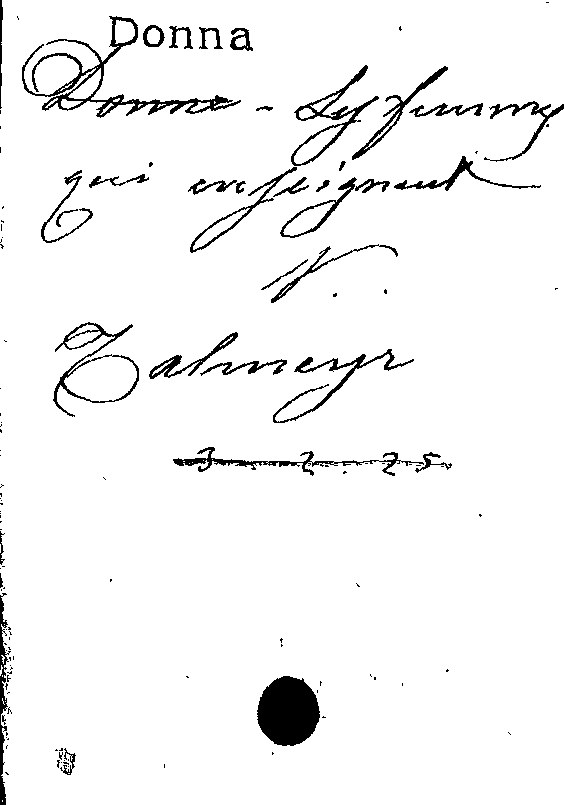 Donna
Donna - Les femmes
qui enseignent
V.
Talmeyr
3. 2. 25